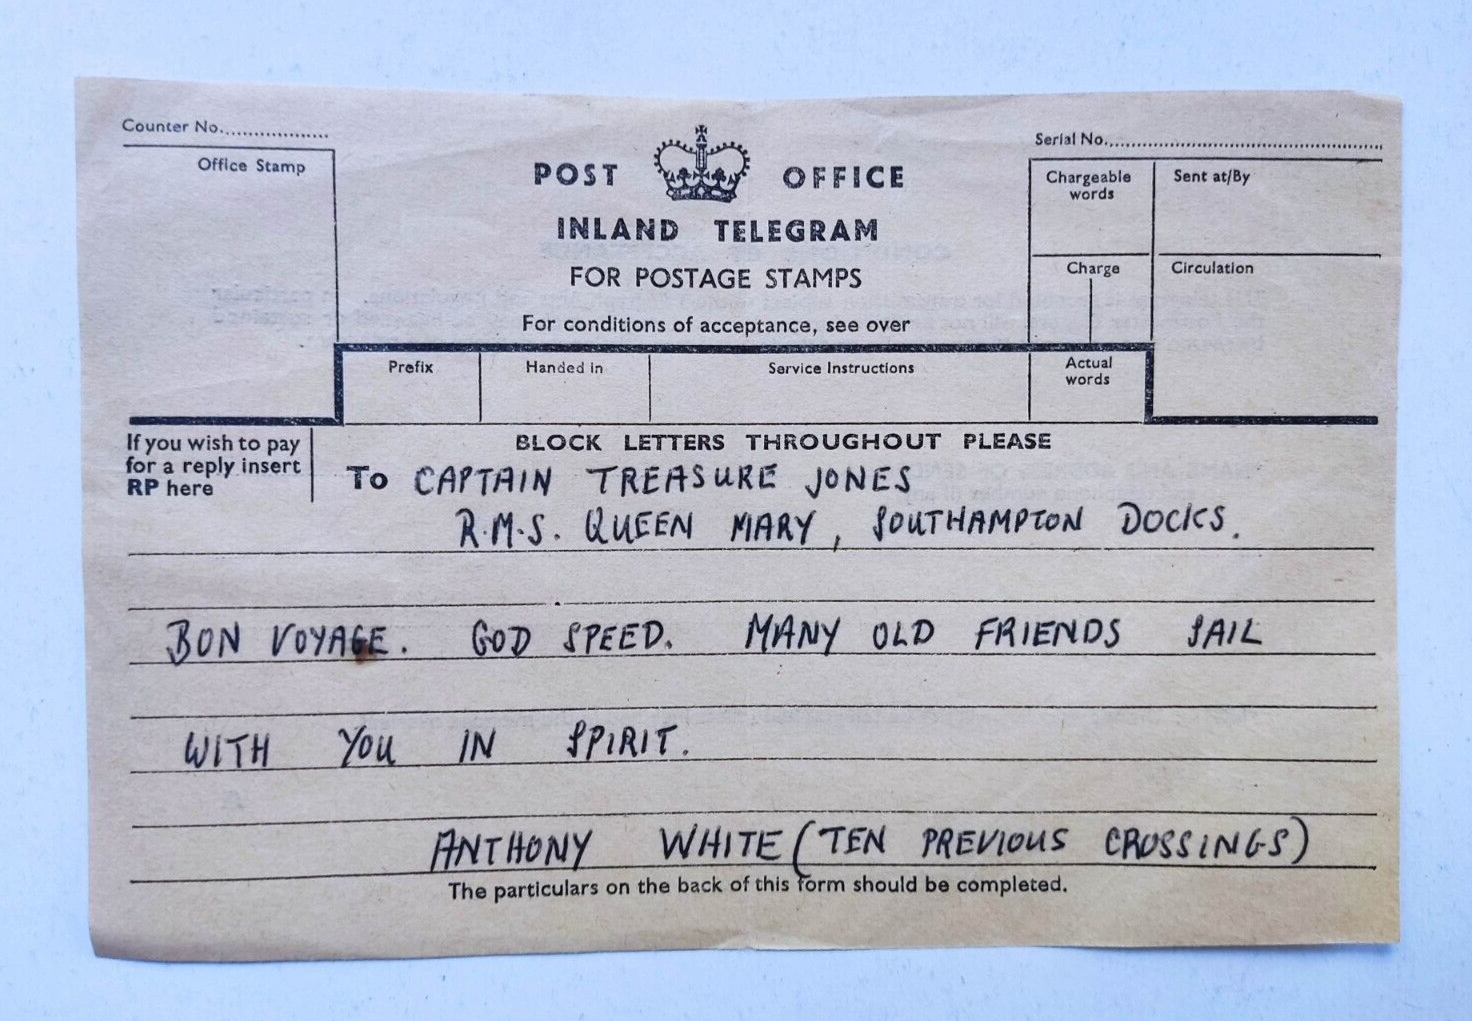 Counter No.
Serial No.
Office Stamp
POST OFFICE
Chargeable words
Sent at/By
INLAND TELEGRAM
FOR POSTAGE STAMPS
Charge
Circulation
For conditions of acceptance, see over
Prefix
Handed in
Service Instructions
Actual words
If you wish to pay
for a reply insert
RP here
BLOCK LETTERS THROUGHOUT PLEASE
To CAPTAIN TREASURE JONES
R.M.S. QUEEN MARY, SOUTHAMPTON DOCKS.
BON VOYAGE. GOD SPEED. MANY OLD FRIENDS SAIL
WITH YOU IN SPIRIT.
ANTHONY WHITE (TEN PREVIOUS CROSSINGS)
The particulars on the back of this form should be completed.